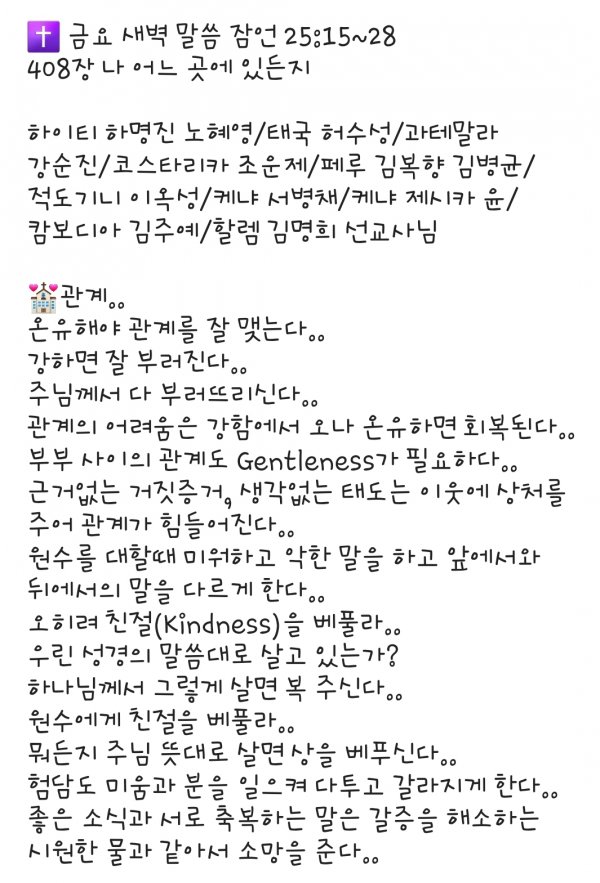 ✝️ 금요 새벽 말씀 잠언 25:15~28
408장 나 어느 곳에 있든지
하이티 하명진 노혜영/태국 허수성/과테말라
강순진/코스타리카 조운제/페루 김복향 김병균/
적도기니 이옥성/케냐 서병채/케냐 제시카 윤/
캄보디아 김주예/할렘 김명희 선교사님
💒관계..
온유해야 관계를 잘 맺는다..
강하면 잘 부러진다..
주님께서 다 부러뜨리신다..
관계의 어려움은 강함에서 오나 온유하면 회복된다..
부부 사이의 관계도 Gentleness가 필요하다..
근거없는 거짓증거, 생각없는 태도는 이웃에 상처를
주어 관계가 힘들어진다..
원수를 대할때 미워하고 악한 말을 하고 앞에서와
뒤에서의 말을 다르게 한다..
오히려 친절(Kindness)을 베풀라..
우린 성경의 말씀대로 살고 있는가?
하나님께서 그렇게 살면 복 주신다..
원수에게 친절을 베풀라..
뭐든지 주님 뜻대로 살면 상을 베푸신다..
험담도 미움과 분을 일으켜 다투고 갈라지게 한다..
좋은 소식과 서로 축복하는 말은 갈증을 해소하는
시원한 물과 같아서 소망을 준다..